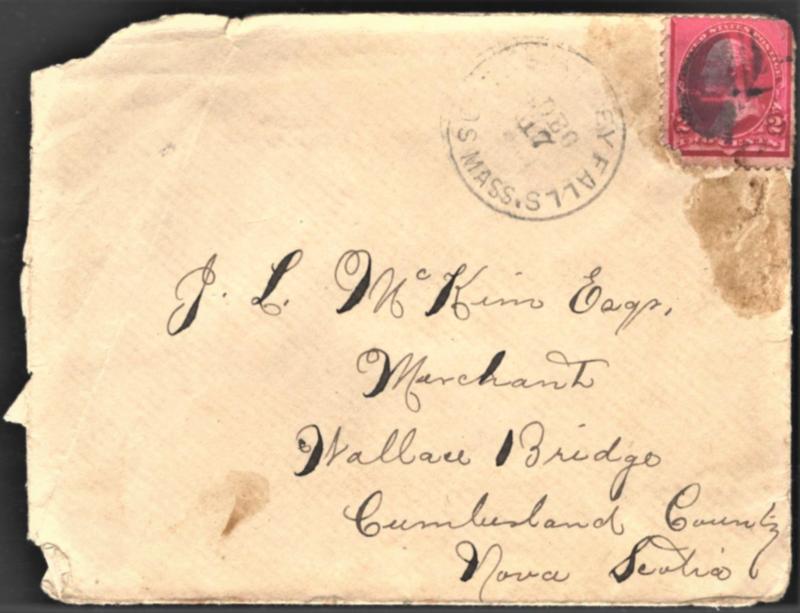 UNITED STATES POSTAGE
2 2
TWO CENTS
EY FALLS
DEC
17
MASS.
J. L. McKim Esqr.
Merchant
Wallace Bridge
Cumberland County
Nova Scotia